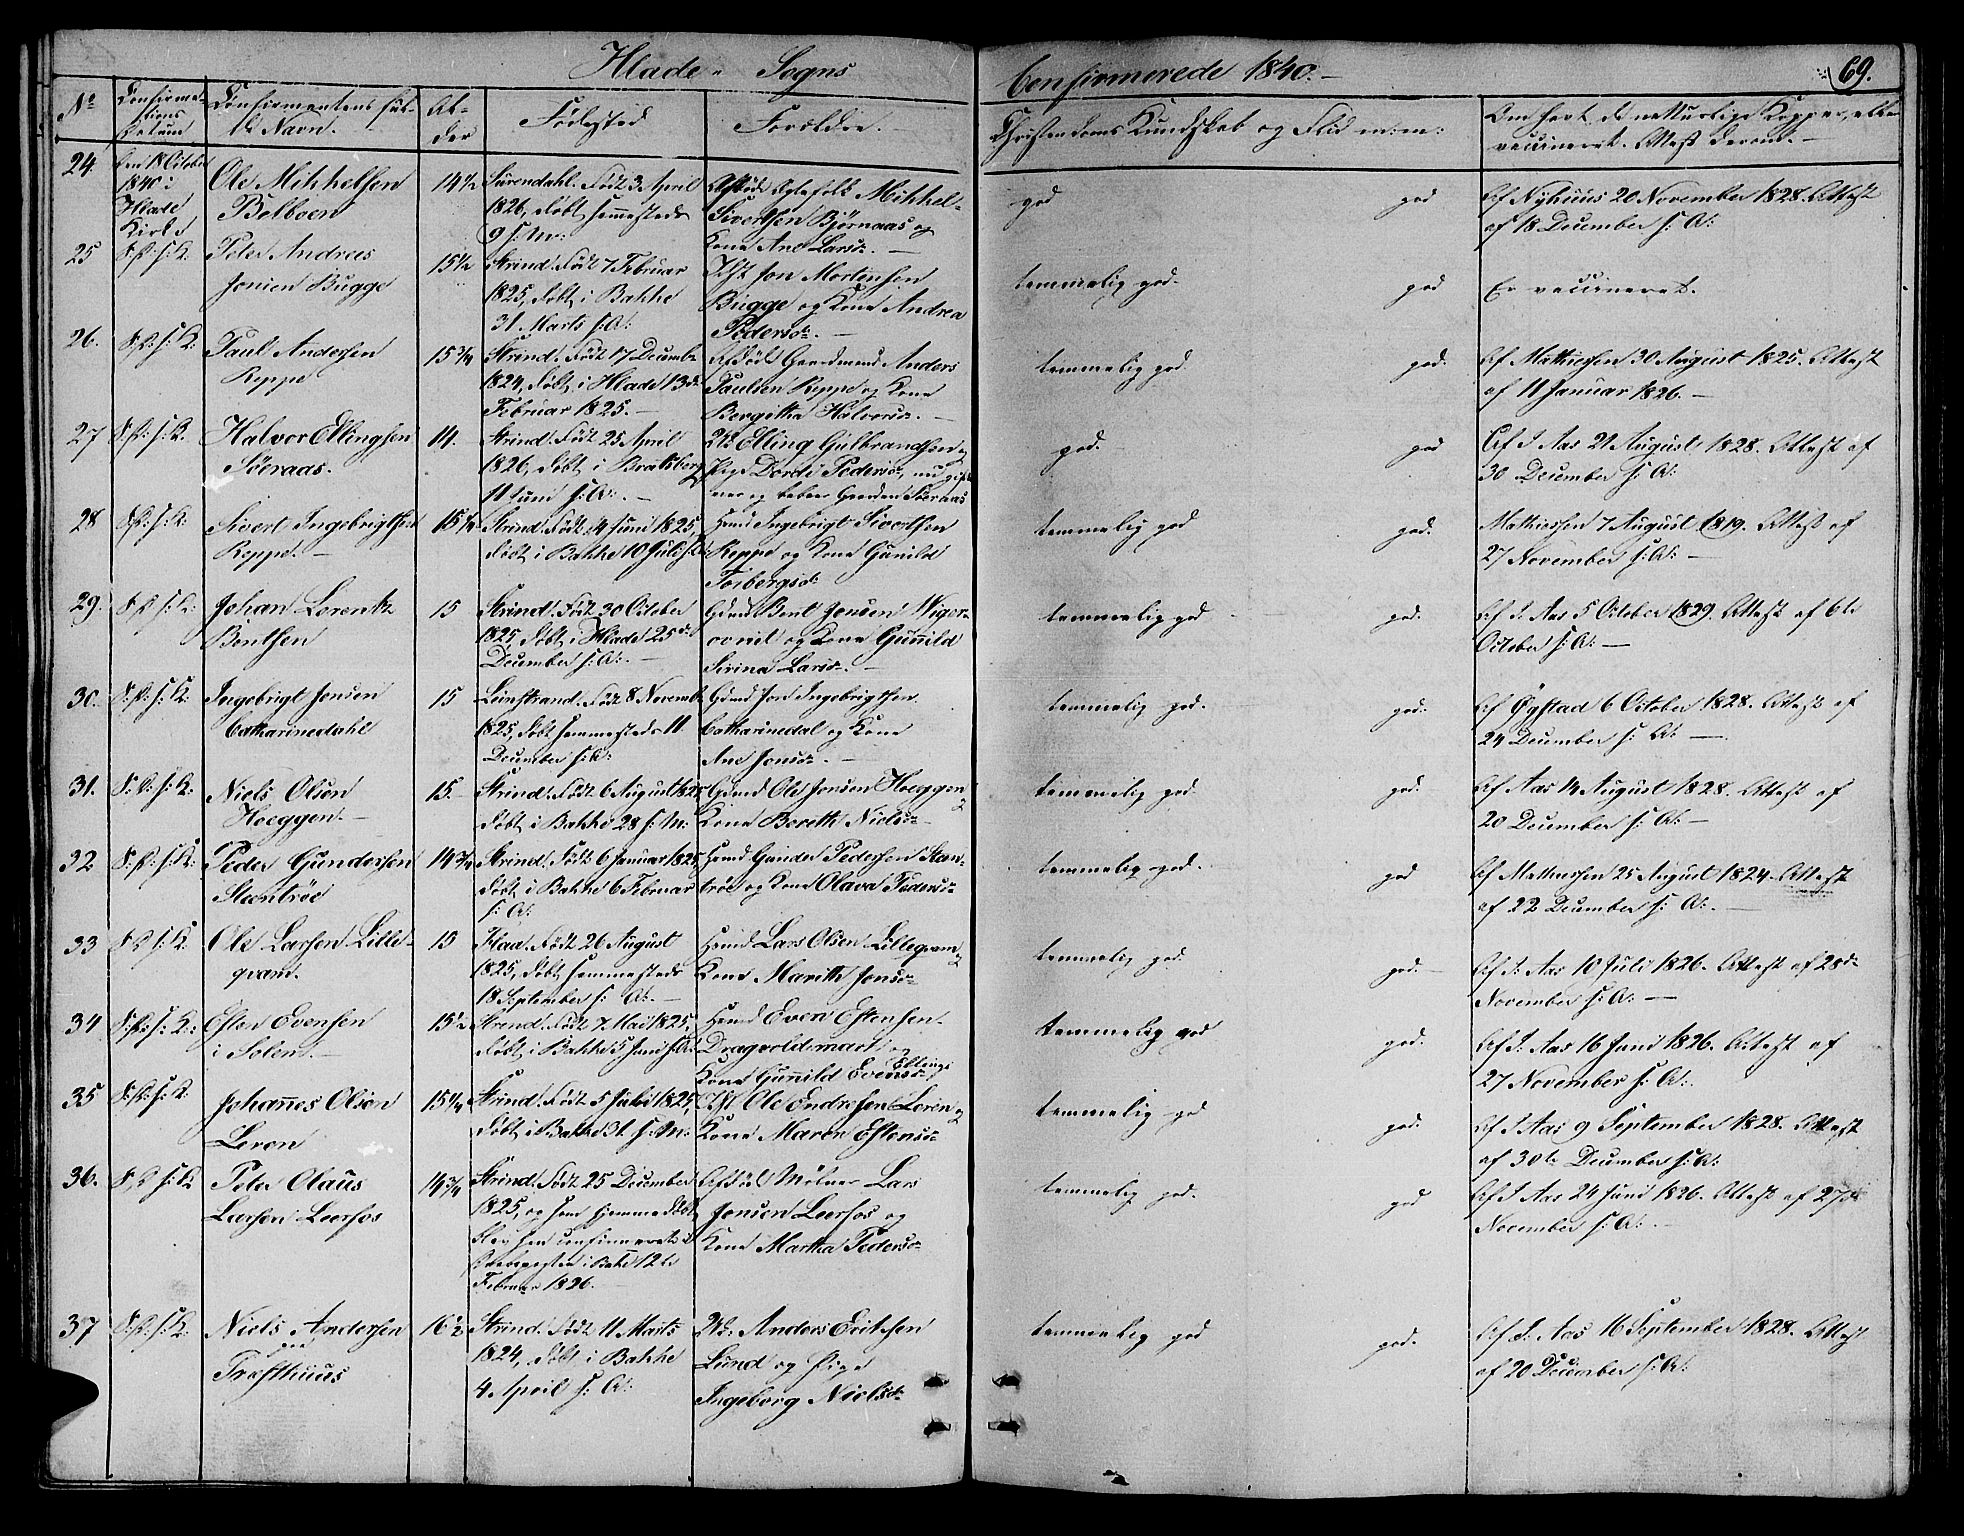 Hlade Sogns
Confirmerede 1840.
69.
No
Confirma-
tions
Datum
Confirmentens ful-
de Navn.
Al-
der
Fødested
Forældre.
Christendoms Kundskab og Flid m: m:
Om havt de naturlige Kopper, eller
vaccineret. Attest derom.
24.
Den 18 October
1840 i
Hlade
Kirke
Ole Mikkelsen
Belboen
14 1/2
Surendahl. Født 3 April
1826, døbt hjemmesteds
9 s: M:
Mikkel
Sivertsen Bjørnaas og
Kone Ane Larsd:
god
god
af Nyhuus 20 November 1828. Attest
af 18 December s: A:
25
Peter Andreas
Jensen Bugge
15 1/2
Strind. Født 7 Februar
1825, døbt i Bakke
31 Marts s: A:
Jon Mortensen
Bugge og Kone Andrea
Pedersd:
temmelig god.
god
Er vaccineret.
26.
Paul Andersen
Reppe
15 3/4
Strind. Født 17 Decembr
1824, døbt i Hlade 13de
Februar 1825.
Afdøde Gaardmand Anders
Paulsen Reppe og Kone
Bergetha Halvorsd:
temmelig god
god.
af Mathiesen 30 August 1825. Attest
af 11 Januar 1826.
27
Halvor Ellingsen
Søeraas.
14.
Strind. Født 25 April
1826, døbt i Bratsberg
11 Juni s: A:
Elling Gulbrandsen og
Pige Dordi Pedersd:, nu gift
Gaarden Søeraas
god.
god
af I. Aas 21 August 1828. Attest af
30 December s: A:
28
Sivert Ingebrigtsen
Reppe.
15 1/4
Strind. Født 14 Juni 1825,
døbt i Bakke 10 Juli s: A:
Ingebrigt Sivertsen
Reppe og Kone Gunild
Torbergsd:
temmelig god
god.
Mathiessen 7 August 1819. Attest af
27 November s: A:
29.
Johan Lorentz
Bentsen
15
Strind. Født 30 October
1825, døbt i Hlade 25de
December s: A:
Gdmd Bent Jensen
og Kone Gunnild
Sirina Larsd:
temmelig god
god.
af I. Aas 5 October 1829. Attest af 6te
October s: A:
30.
Ingebrigt Jensen
Catharinedahl
15
Leinstrand. Født 8 Novembr
1825, døbt hjemmesteds 11
December s: A:
Gdmd Jon Ingebrigtsen
Catharinedal og Kone
Ane Jonsd:
temmelig god.
god.
af Øgstad 6 October 1828. Attest af
24 December s: A:
31.
Niels Olsen
Hoeggen.
15.
Strind. Født 6 August 1825
døbt i Bakke 28 s: M:
Gdmd Ole Jensen Hoeggen &
Kone Bereth Nielsd:
temmelig god
god.
af Aas 14 August 1828. Attest af
20 December s: A:
32
Peder Gundersen
Steentrøe
14 3/4
Strind. Født 6 Januar 1825,
døbt i Bakke 6 Februar
s: A:
Gunder Pedersen Steen-
trøe og Kone Olava Pedersd:
temmelig god.
god
af Mathiesen 25 August 1824. Attest
af 22 December s: A:
33
Ole Larsen Lille-
qvam.
15
Flaa. Født 26 August
1825, døbt hjemmesteds
18 September s: A:
Lars Olsen Lilleqvam &
Kone Marith Jonsd:
temmelig god.
god.
af I. Aas 10 Juli 1826. Attest af 28de
November s: A:
34
Esten Evensen
i Solem.
15 1/2
Strind. Født 7 Mai 1825,
døbt i Bakke 5 Juni s: A:
Even Estensen
Dragvoldsmark og
Kone Gunild Ellings
Evensd:
temmelig god
god.
af I. Aas 16 Juni 1826. Attest af
27 November s: A:
35
Johannes Olsen
Leren
15 1/4
Strind. Født 5 Juli 1825,
døbt i Bakke 31 s: M:
Ole Endresen Leren &
Kone Maren Estensd:
temmelig god
god.
af I Aas 9 September 1828. Attest
af 30te December s: A:
36.
Peter Olaus
Larsen Leerfos
14 3/4
Strind. Født 25 December
1825, og hjemmedøbt,
confirmeret
i Bakke 12te
Februar 1826.
Afdøde Mølner Lars
Jensen Leerfos og
Kone Martha Pedersd:
temmelig god.
god
af I Aas 24 Juni 1826. Attest af 27de
November s: A:
37
Niels Andersen
Træsthuus
16 1/2
Strind. Født 11 Marts
1824, døbt i Bakke
4 April s: A:
Anders Eriksen
Lund og Pige
Ingeborg Nielsd:
temmelig god
god.
af I. Aas 16 September 1828. Attest
af 20 December s: A: